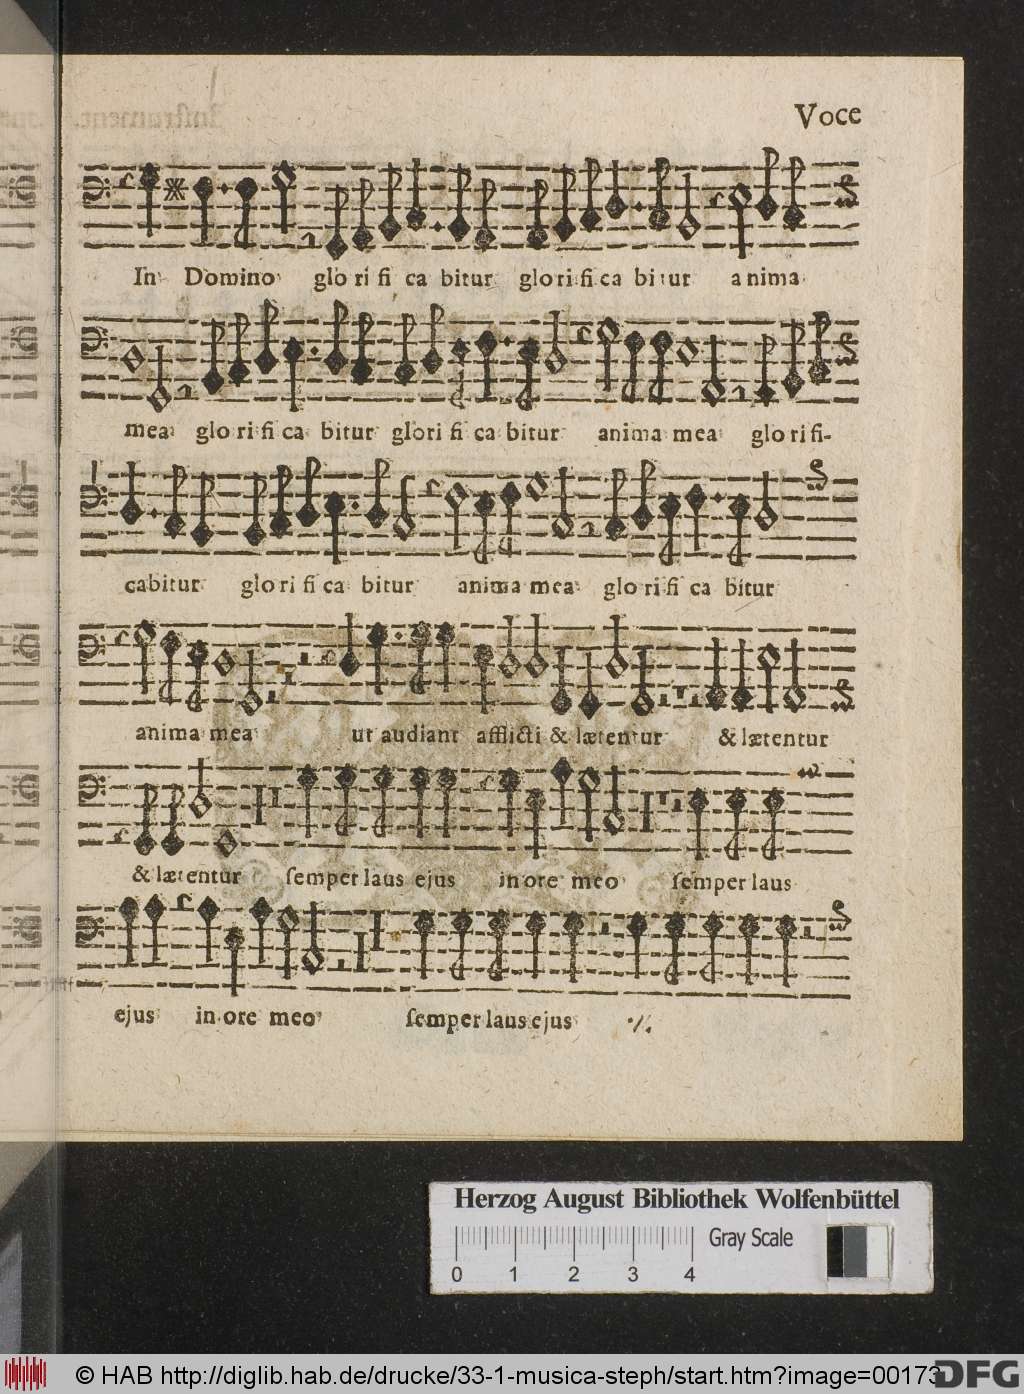 Voce
In Domino glo ri fi ca bitur glo ri fi ca bi tur a nima
mea glo ri fi ca bitur glo ri fi ca bitur anima mea glo ri fi-
cabitur glo ri fi ca bitur anima mea glo ri fi ca bitur
anima mea ut audiant afflicti & lætentur & lætentur
& lætentur ſemper laus ejus in ore meo ſemper laus
ejus in ore meo ſemper laus ejus ·/.
Herzog August Bibliothek Wolfenbüttel
Gray Scale
0 1 2 3 4
© HAB http://diglib.hab.de/drucke/33-1-musica-steph/start.htm?image=00173
DFG